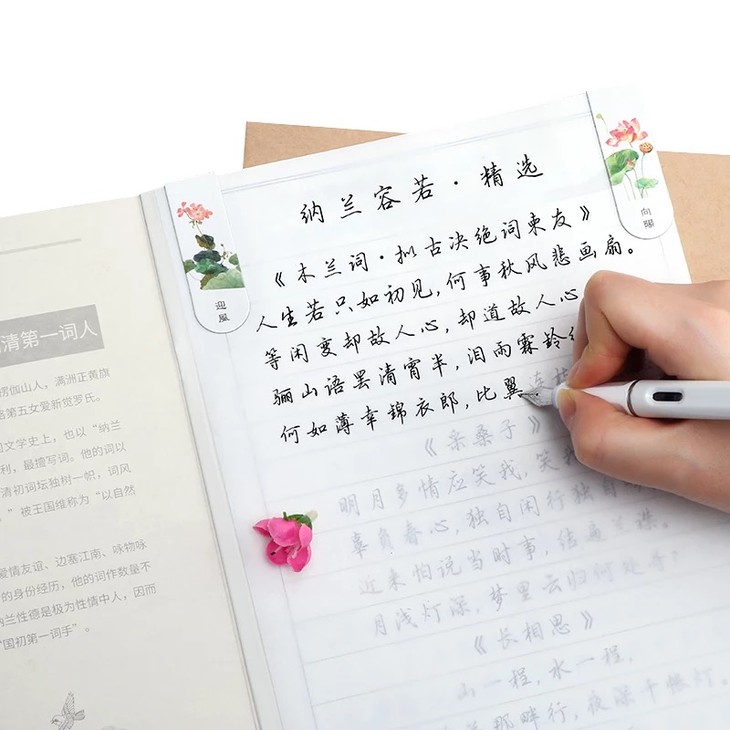 清第一词人
楞伽山人，满洲正黄旗
第五女爱新觉罗氏。
文学史上，也以“纳兰
利，最擅写词。他的词以
清初词坛独树一帜，词风
”被王国维称为“以自然
爱情友谊、边塞江南、咏物咏
的身份经历，他的词作数量不
纳兰性德是极为性情中人，因而
“国初第一词手”。
迎風
向陽
纳兰容若·精选
《木兰词·拟古决绝词柬友》
人生若只如初见，何事秋风悲画扇。
等闲变却故人心，却道故人心
骊山语罢清宵半，泪雨霖鈴
何如薄幸錦衣郎，比翼连
《采桑子》
明月多情应笑我，笑
辜负春心，独自闲行独自
近来怕说当时事，结遍兰襟。
月浅灯深，梦里云归何处寻？
《长相思》
山一程，水一程，
那畔行，夜深千帐灯。